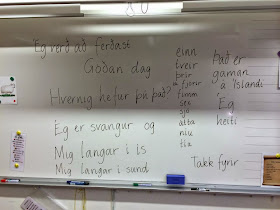 Eg verð að ferðast
Goðan dag
Hvernig hefur þú það?
Eg er svangur og
Mig langar i is
Mig langar i sund
einn
tveir
þrir
fjorir
fimm
sex
sjo
atta
niu
tiu
Það er
gaman
á Íslandi
Ég
heiti
Takk fyrir